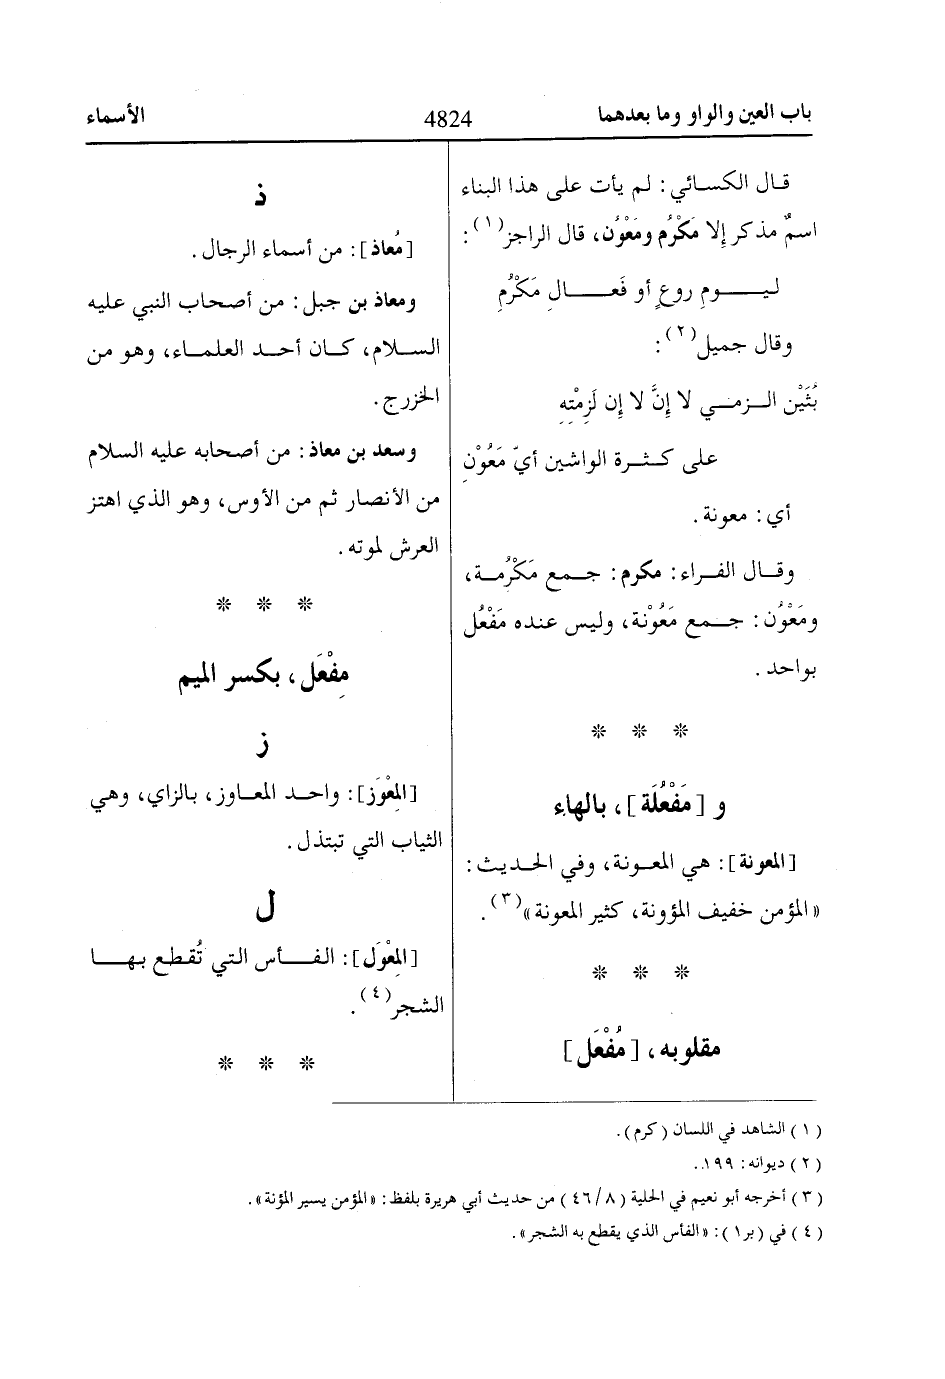 باب العين والواو وما بعدهما
4824
الأسماء
قال الكسائي: لم يأت على هذا البناء
اسمٌ مذكر إلا مَكْرُم ومَعْوُن، قال الراجز(١):
ليــوم روعٍ أو فَعــالِ مَكْرُمِ
وقال جميل(٢):
بُثَيْن الــزمــي لا إنَّ لا إن لَزِمْتِهِ
على كثرة الواشين أيّ مَعُوْنِ
أي: معونة.
وقال الفراء: مكرم: جمع مَكْرُمة،
ومَعْوُن: جمع مَعُوْنة، وليس عنده مَفْعُل
بواحد.
* * *
و [مَفْعُلَة]، بالهاء
[المعونة]: هي المعونة، وفي الحديث:
«المؤمن خفيف المؤونة، كثير المعونة»(٣).
* * *
مقلوبه، [مُفْعَل]
ذ
[مُعاذ]: من أسماء الرجال.
ومعاذ بن جبل: من أصحاب النبي عليه
السلام، كان أحد العلماء، وهو من
الخزرج.
وسعد بن معاذ: من أصحابه عليه السلام
من الأنصار ثم من الأوس، وهو الذي اهتز
العرش لموته.
* * *
مِفْعَل، بكسر الميم
ز
[المِعْوَز]: واحد المعاوز، بالزاي، وهي
الثياب التي تبتذل.
ل
[المِعْوَل]: الفأس التي تُقطع بها
الشجر(٤).
* * *
(١) الشاهد في اللسان (كرم).
(٢) ديوانه: ١٩٩.
(٣) أخرجه أبو نعيم في الحلية (٤٦/٨) من حديث أبي هريرة بلفظ: «المؤمن يسير المؤنة».
(٤) في (بر١): «الفأس الذي يقطع به الشجر».